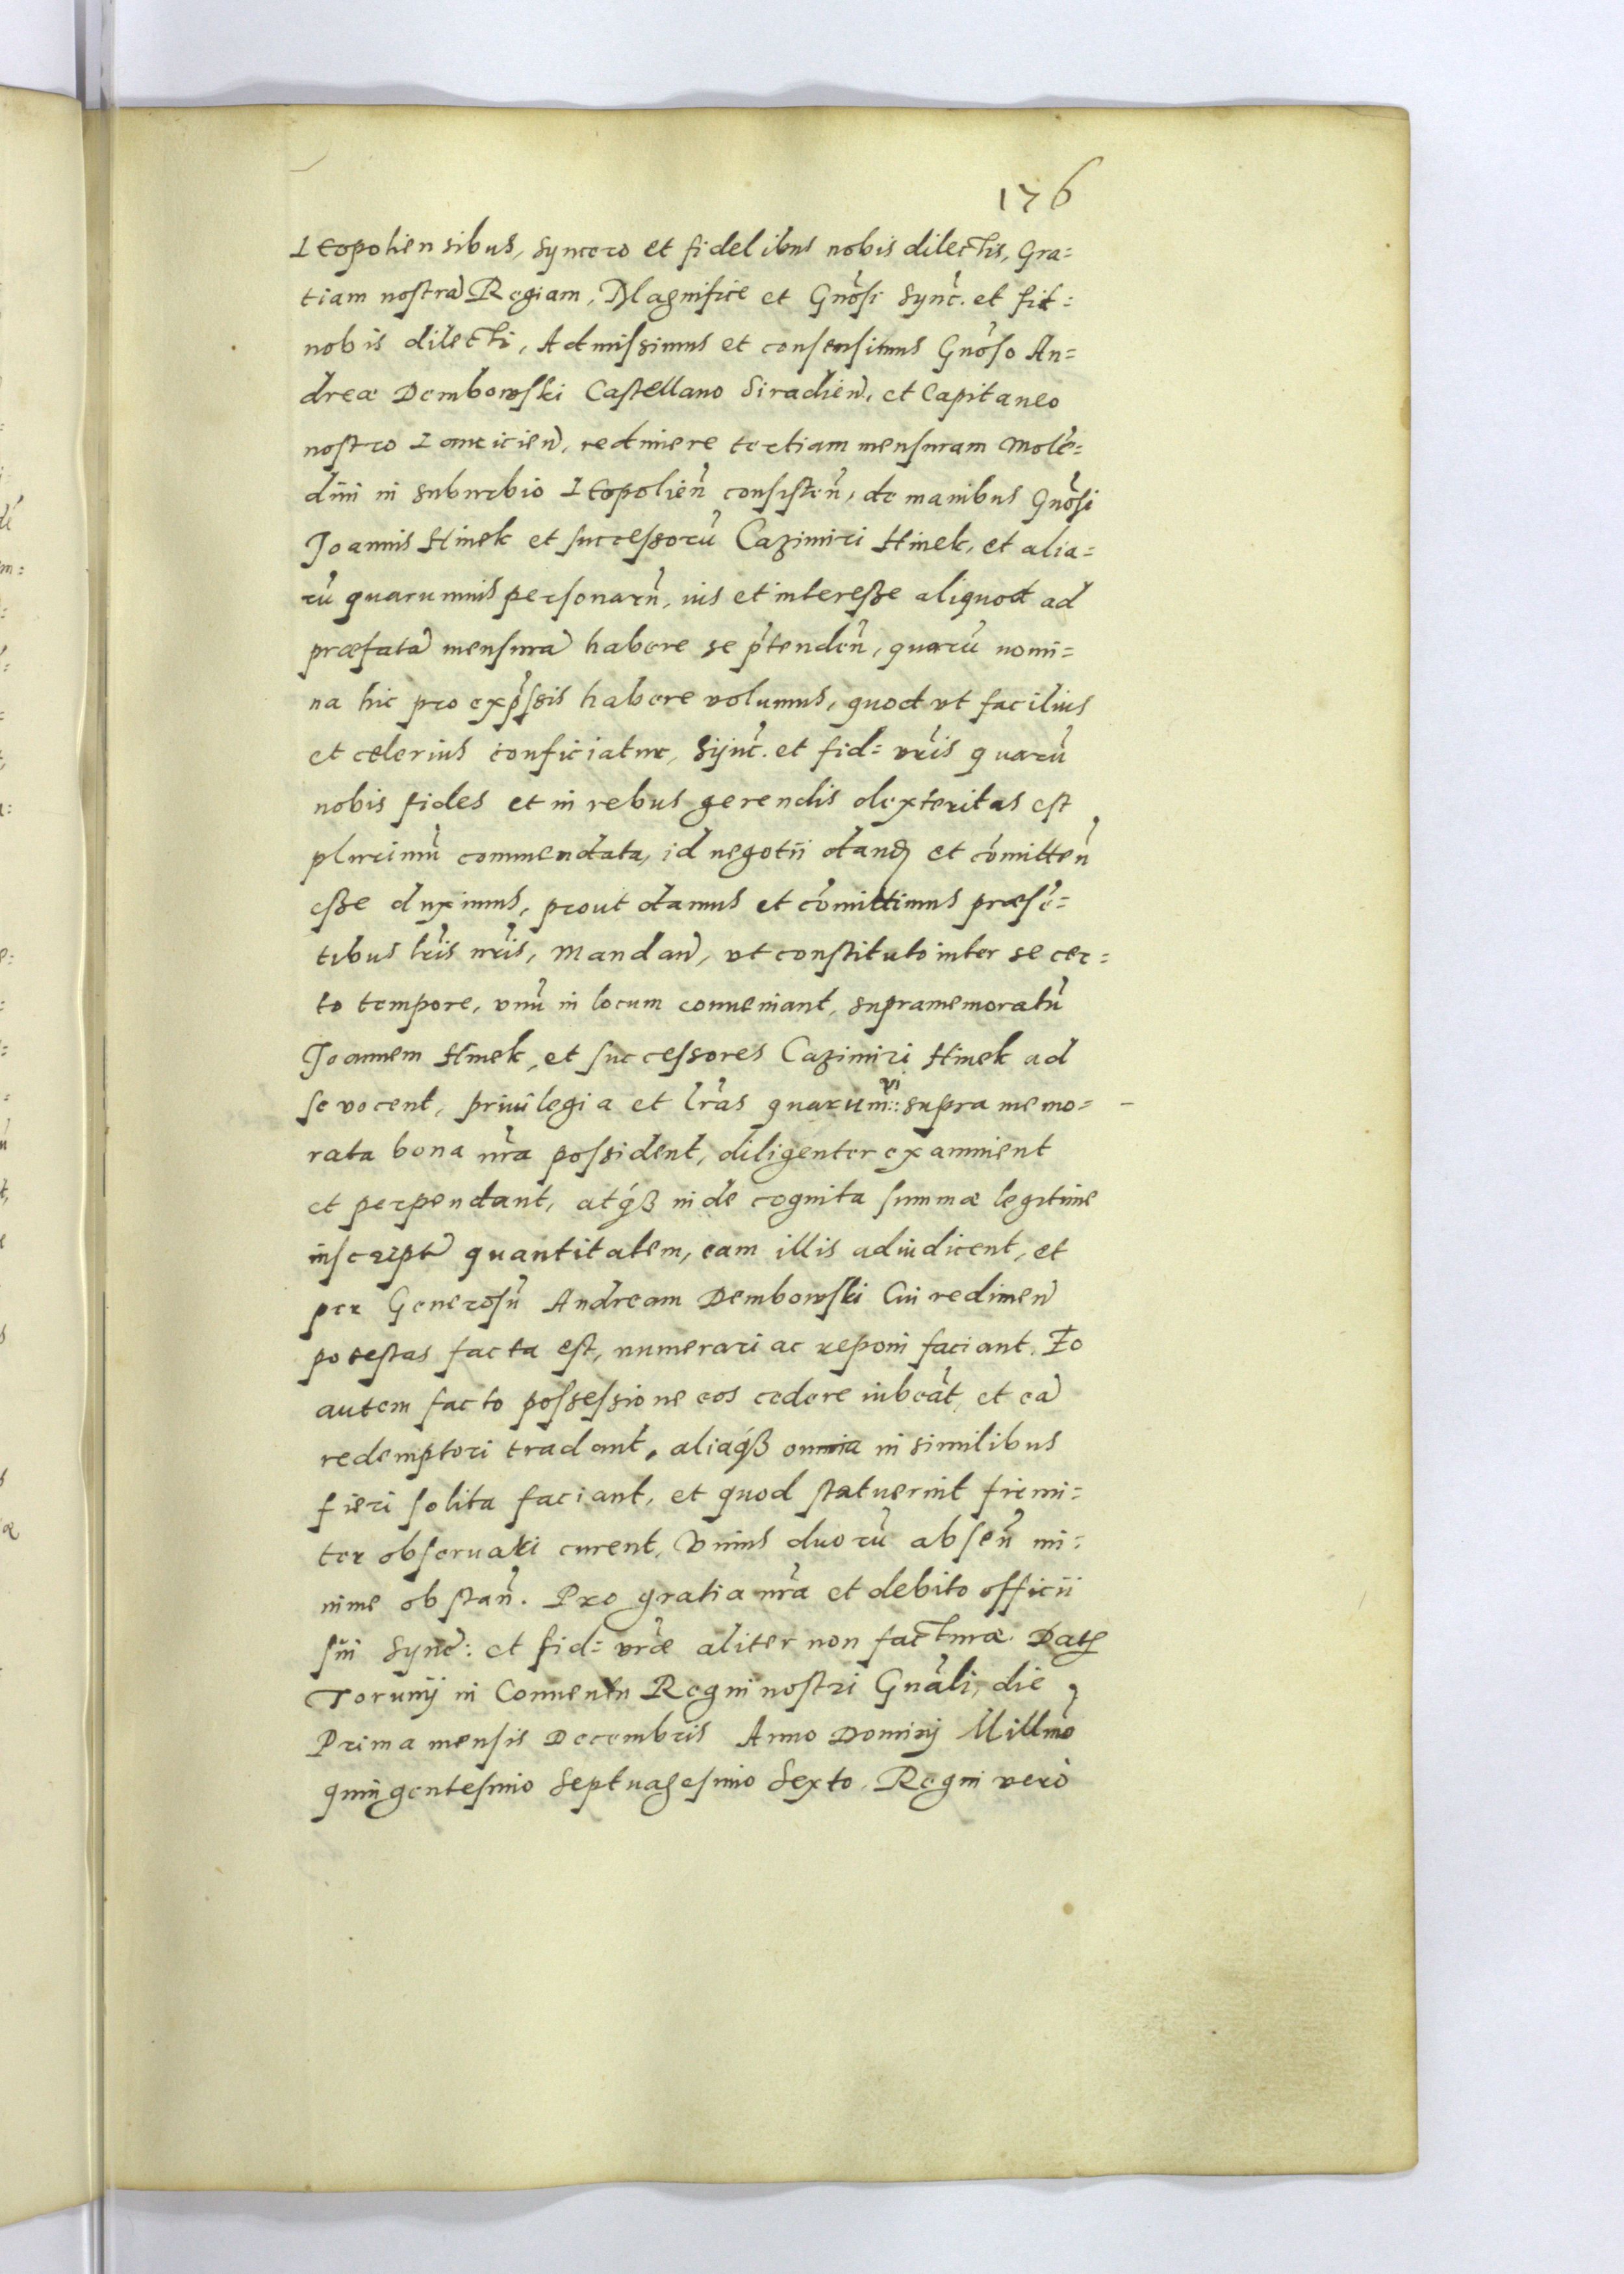 176
Leopoliensibus, syncero et fidelibus nobis dilectis, Gra=
tiam nostrã Regiam, Magnifice et Gnõsi Synč. et fid=
nobis dilecti, Admissimus et consensimus Gnõso An=
dreæ Dembowski Castellano Siradieñ, et Capitaneo
nostro Lancicieñ, redimere tertiam mensuram Molẽ=
dini in suburbio Leopolieñ consisteñ, de manibus Gnõsi
Joannis Hinek et successorũ Cazimiri Hinek, et alia=
rũ quarumuis personarũ, ius et interesse aliquod ad
præfatã mensurã habere se p̃tendeñ, quarũ nomi=
na hic pro exp̃ssis habere volumus, quod vt facilius
et celerius conficiatur, Sijnč. et fid= vr̃is quarũ
nobis fides et in rebus gerendis dexteritas est
plurimũ commendata, id negotii dand et cõmitteñ
esse duximus, prout damus et cõmittimus præsẽ=
tibus lr̃is nr̃is, Mandañ, vt constituto inter se cer=
to tempore, vnũ in locum conueniant, supramemoratũ
Joannem Hinek, et successores Cazimiri Hinek ad
se vocent, priuilegia et lr̃as quarum :: vi supra memo=
rata bona nr̃a possident, diligenter examinent
et perpendant, atq́ꝫ inde cognita summæ legitime
inscriptæ quantitatem, eam illis adiudicent, et
per Generosũ Andream Dembowski Cui redimeñ
potestas facta est, numerari ac reponi faciant. Eo
autem facto possessione eos cedere iubeãt, et eã
redemptori tradant, aliaq́ꝫ omnia in similibus
fieri solita faciant, et quod statuerint firmi=
ter obseruari curent, Vnius duorũ abseñ mi=
nime obstañ. Pro gratia nr̃a et debito officii
sui Synč: et fid= vr̃æ aliter non facturæ. Datꝫ
Torunij in Conuentu Regni nostri Gnãli, die
Prima mensis Decembris Anno Dominj Millmõ
quingentesimo Septuagesimo Sexto, Regni verò